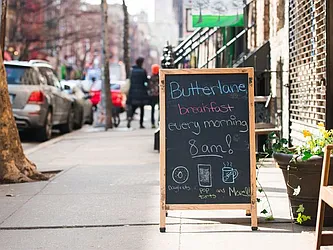 Butterlane
breakfast
every morning
8am!
Donuts... pop tarts and More!